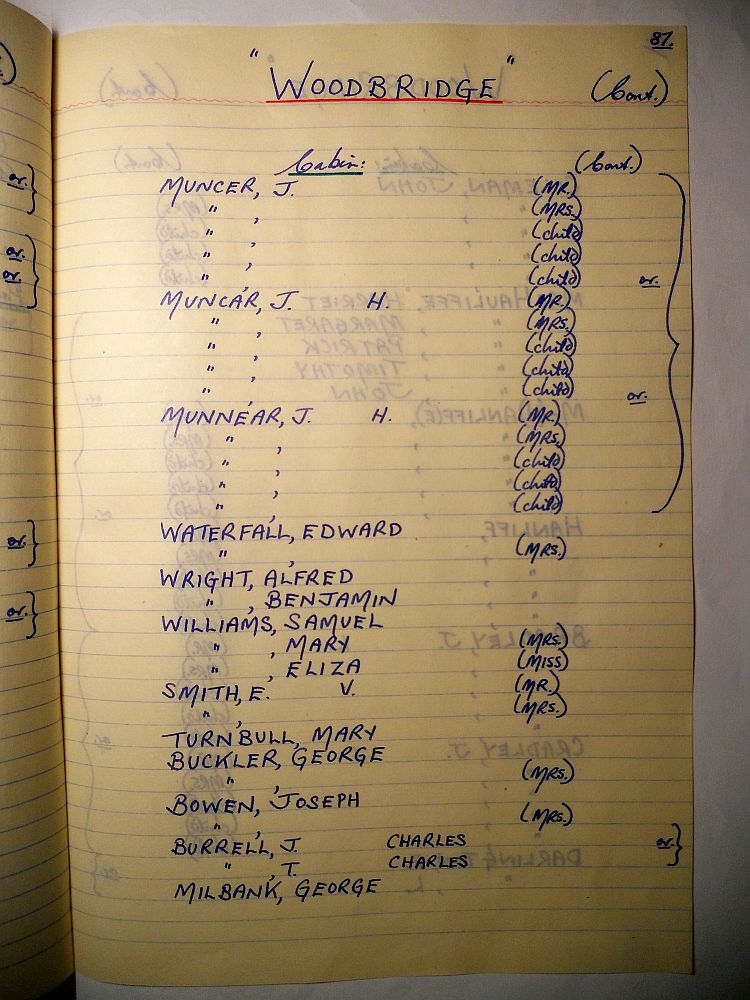 87.
"WOODBRIDGE" (Cont.)
Cabin: (Cont.)
MUNCER, J. (MR.)
" , (MRS.)
" , (child)
" , (child)
" , (child) or.
MUNCAR, J. H. (MR.)
" , (MRS.)
" , (child)
" , (child)
" , (child) or.
MUNNEAR, J. H. (MR.)
" , (MRS.)
" , (child)
" , (child)
" , (child)
WATERFALL, EDWARD
" , (MRS.)
WRIGHT, ALFRED
" , BENJAMIN
WILLIAMS, SAMUEL
" , MARY (MRS.)
" , ELIZA (MISS)
SMITH, E. V. (MR.)
" , (MRS.)
TURNBULL, MARY
BUCKLER, GEORGE
" , (MRS.)
BOWEN, JOSEPH
" , (MRS.)
BURRELL, J. CHARLES or.
" , T. CHARLES
MILBANK, GEORGE
or.
or.
or.
or.
or.